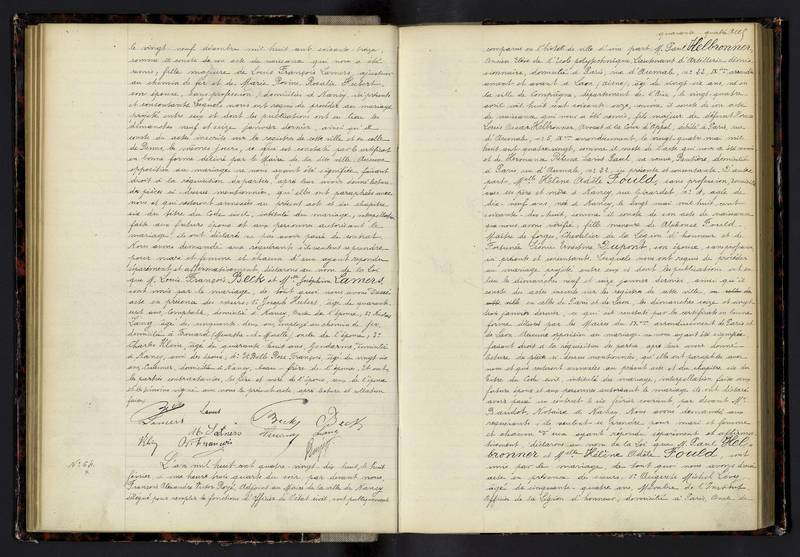 le vingt neuf décembre mil huit cent soixante treize,
comme il conste de son acte de naissance qui nous a été
remis, fille majeure de Louis François Lamers, ajusteur
au chemin de fer et de Marie Rosalie Hubert,
son épouse, sans profession, domiciliés à Nancy, ici présents
et consentants. Lesquels nous ont requis de procéder au mariage
projeté entre eux et dont les publications ont eu lieu les
dimanches neuf et seize janvier dernier, ainsi qu'il
conste en acte inscrits sur les registres de cette ville et en celle
de les mêmes jours, ce que est constaté par le certificat
en bonne forme délivré par le Maire de la dite ville. Aucune
opposition au mariage ne nous ayant été signifiée, faisant
droit à la réquisition des parties, après leur avoir donné lecture
des pièces ci-dessus mentionnées, qu'elles ont paraphées avec
nous et qui resteront annexées au présent acte et du chapitre
six du titre du Code civil, intitulé du mariage, interpellation
faite aux futurs époux et aux personnes autorisant le
mariage, ils ont déclaré n'avoir point de contrat.
Nous avons demandé aux requérants s'ils veulent se prendre
pour mari et femme et chacun d'eux ayant répondu
séparément et affirmativement, déclarons au nom de la Loi
que M. Louis François Beck et Mlle Joséphine Lamers,
sont unis par le mariage, de tout quoi nous avons dressé
acte en présence des sieurs; 1° Joseph Hubert, âgé de quarante
ans, comptable, domicilié à Nancy, oncle de l'épouse; 2° Nicolas
Lang, âgé de cinquante deux ans, Employé au chemin de fer,
domicilié à Frouard, Meurthe et Moselle, oncle de l'épouse; 3°
Charles Klein, âgé de quarante huit ans, Gendarme, domicilié
à Nancy, ami des époux; 4° François, âgé de vingt six
ans, domicilié à Nancy, beau-frère de l'époux; Et ont
les parties contractantes, les père et mère de l'épouse, ceux de l'époux
et les témoins signé avec nous le présent acte, après lecture et collation
faites.
Beck Beck Beck
Lamers Lamers
Klein François Lang
N° 66.
L'an mil huit cent quatre-vingt-dix huit, le huit
février à une heure trois quarts du soir, par devant nous,
François Alexandre Victor Adjoint au Maire de la ville de Nancy
délégué pour remplir les fonctions d'officier de l'état civil, ont publiquement
quarante quatre
comparu en l'hôtel de ville d'une part M. Paul Helbronner,
Ancien Elève de l'Ecole polytechnique, Lieutenant d'Artillerie démis-
sionnaire, domicilié à Paris, rue d'Aumale, n° 22, arrondis-
sement et avant à Laon, Aisne, âgé de vingt six ans, né en
la ville de Compiègne, département de l'Oise, le vingt-quatre
avril mil huit cent soixante onze, comme il conste de son acte
de naissance, qui nous a été remis, fils majeur de défunt
Louis Oscar Helbronner, Avocat à la Cour d'Appel, décédé à Paris, rue
d'Aumale, arrondissement, le vingt-quatre mai mil
huit cent quatre-vingt, comme il conste de l'acte qui nous a été remis
et de Hermance sa veuve, Rentière, domiciliée
à Paris, rue d'Aumale, n° 22, ici présente et consentante. D'autre
part, Mlle Hélène Adèle Fould, sans profession, domiciliée
avec ses père et mère à Nancy, rue Girardet, n° 1, âgée de
dix-neuf ans, née à Nancy, le vingt mai mil huit cent
soixante-dix-huit, comme il conste de son acte de naissance
que nous avons vérifié, fille mineure de Alphonse Fould,
Maître de forges, Chevalier de la Légion d'honneur et de
Fortunée Léonie Ernestine Dupont, son épouse, sans profession,
ici présents et consentants. Lesquels nous ont requis de procéder
au mariage projeté entre eux et dont les publications ont eu
lieu les dimanches neuf et seize janvier dernier, ainsi qu'il
conste des actes inscrits sur les registres de cette ville,
en celles de Paris et de Laon, les dimanches seize et vingt-
trois janvier dernier, ce qui est constaté par les certificats en bonne
forme, délivrés par les Maires du arrondissement de Paris et
de Laon. Aucune opposition au mariage ne nous ayant été signifiée,
faisant droit à la réquisition des parties, après leur avoir donné
lecture des pièces ci-dessus mentionnées, qu'elles ont paraphées avec
nous et qui resteront annexées au présent acte et du chapitre six du
titre du Code civil, intitulé du mariage, interpellation faite aux
futurs époux et aux personnes autorisant le mariage, ils ont déclaré
avoir passé un contrat le six février courant, par devant Me
Baudot, Notaire à Nancy. Nous avons demandé aux
requérants s'ils veulent se prendre pour mari et femme
et chacun d'eux ayant répondu séparément et affirma-
tivement, déclarons au nom de la Loi que M. Paul Hel-
bronner et Mlle Hélène Adèle Fould, sont
unis par le mariage, de tout quoi nous avons dressé
acte en présence des sieurs; 1° Auguste Michel Lévy,
âgé de cinquante-quatre ans, Membre de l'Institut,
Officier de la Légion d'honneur, domicilié à Paris, Oncle de